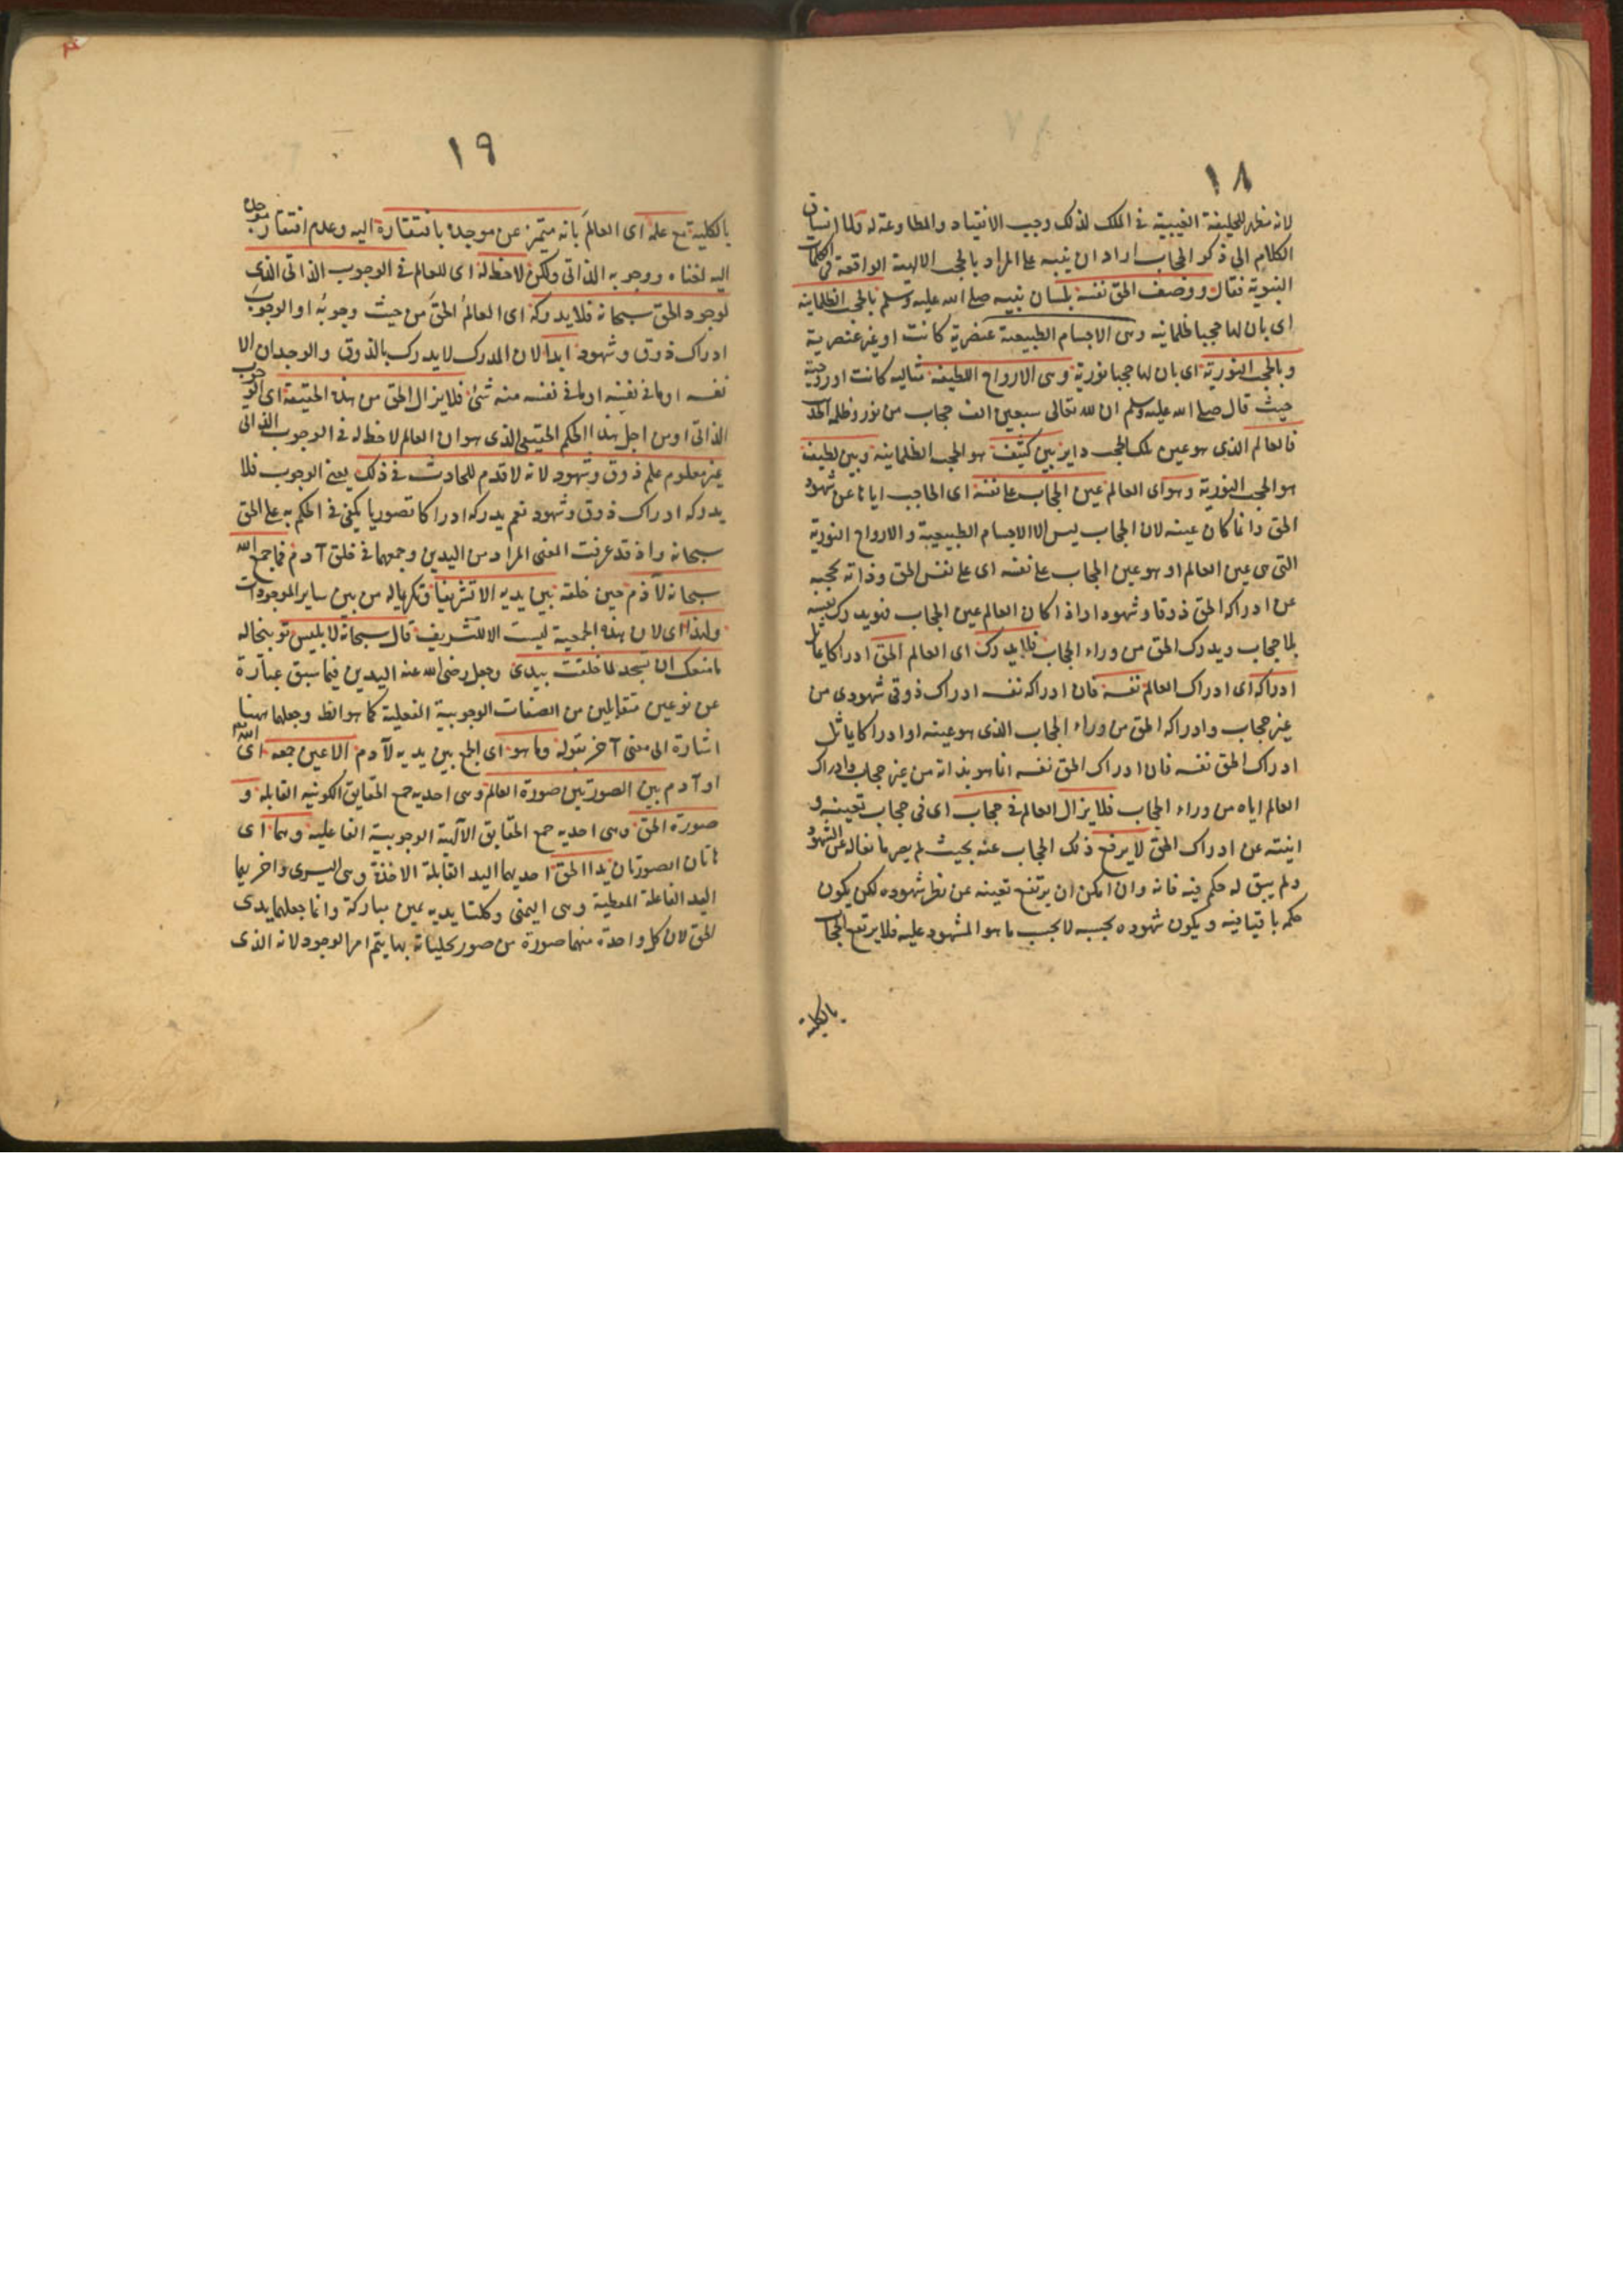 ١٨
لانه مظهر للخليفة الغيبية فى الملك لذلك وجب الانقياد والمطاوعة له ولما انساق
الكلام الى ذكر الحجاب اراد ان ينبه على المراد بالحجب الالهية الواقعة فى الكلمات
النبوية فقال ووصف الحق نفسه بلسان نبيه صلى الله عليه وسلم بالحجب الظلمانية
اى بان لها حجبا ظلمانيه وهى الاجسام الطبيعية عنصرية كانت او غير عنصرية
وبالحجب النورية اى بان لها حجبا نورية وهى الارواح اللطيفة مثاليه كانت او روحية
حيث قال صلى الله عليه وسلم ان لله تعالى سبعين الف حجاب من نور وظلمة الحديث
فالعالم الذى هو عين تلك الحجب داير بين كثيف هو الحجب الظلمانية وبين لطيف
هو الحجب النورية وهو اى العالم عين الحجاب على نفسه اى الحاجب ايانا عن شهود
الحق وانما كان عينه لان الحجاب ليس الا الاجسام الطبيعية والارواح النورية
التى هى عين العالم او هو عين الحجاب على نفسه اى على نفس الحق وذاته يحجبه
عن ادراكه الحق ذوقا وشهودا واذا كان العالم عين الحجاب فهو يدرك نفسه
بلا حجاب ويدرك الحق من وراء الحجاب فلا يدرك اى العالم الحق ادراكا يماثل
ادراكه اى ادراك العالم نفسه فان ادراكه نفسه ادراك ذوقى شهودى من
غير حجاب وادراكه الحق من وراء الحجاب الذى هو عينه او ادراكا يماثل
ادراك الحق نفسه فان ادراك الحق نفسه انما هو بذاته من غير حجاب وادراك
العالم اياه من وراء الحجاب فلا يزال العالم فى حجاب اى فى حجاب تعينه و
انيته عن ادراك الحق لا يرفع ذلك الحجاب عنه بحيث لم يصر مانعا له عن الشهود
ولم يبق له حكم فيه فانه وان امكن ان يرتفع تعينه عن نظر شهوده لكن يكون
حكمه باقيا فيه ويكون شهوده بحسبه لا بحسب ما هو المشهود عليه فلا يرتفع الحجاب
بالكلية
١٩
بالكلية مع علمه اى العالم بانه متميز عن موجده بافتقاره اليه وعدم افتقار موجده
اليه لغناه ووجوبه الذاتى ولكن لا حظ له اى للعالم فى الوجوب الذاتى الذى
لوجود الحق سبحانه فلا يدركه اى العالم الحق من حيث وجوبه او الوجوب
ادراك ذوق وشهود ابدا لان المدرك لا يدرك بالذوق والوجدان الا
نفسه او ما فى نفسه او ما فى نفسه منه شئ فلا يزال الحق من هذه الحقيقة اى الوجوب
الذاتى او من اجل هذا الحكم الحقيقى الذى هو ان العالم لا حظ له فى الوجوب الذاتى
غير معلوم علم ذوق وشهود لانه لا قدم للحادث فى ذلك يعنى الوجوب فلا
يدركه ادراك ذوق وشهود نعم يدركه ادراكا تصوريا يكفى فى الحكم به على الحق
سبحانه واذ قد عرفت المعنى المراد من اليدين وجمعهما فى خلق آدم فما جمع الله
سبحانه لآدم حين خلقه بين يديه الا تشريفا وتكريما له من بين ساير الموجودات
ولهذا اى لان هذه الجمعية ليست الا للتشريف قال سبحانه لابليس توبيخا له
ما منعك ان تسجد لما خلقت بيدى وجعل رضى الله عنه اليدين فيما سبق عبارة
عن نوعين متقابلين من الصفات الوجوبية الفعلية كما هو الظ وجعلهما ههنا
اشارة الى معنى آخر بقوله وما هو اى الجمع بين يديه لآدم الا عين جمعه اى الله
او آدم بين الصورتين صورة العالم وهى احدية جمع الحقايق الكونيه القابلة و
صورة الحق وهى احدية جمع الحقايق الالهية الوجوبية الفاعلية وهما اى
هاتان الصورتان يدا الحق احديهما اليد القابلة الاخذة وهى اليسرى واخريهما
اليد الفاعلة المعطية وهى اليمنى وكلتا يديه يمين مباركة وانما جعلهما يدى
الحق لان كل واحدة منهما صورة من صور تجلياته بها يتم امر الوجود لانه الذى